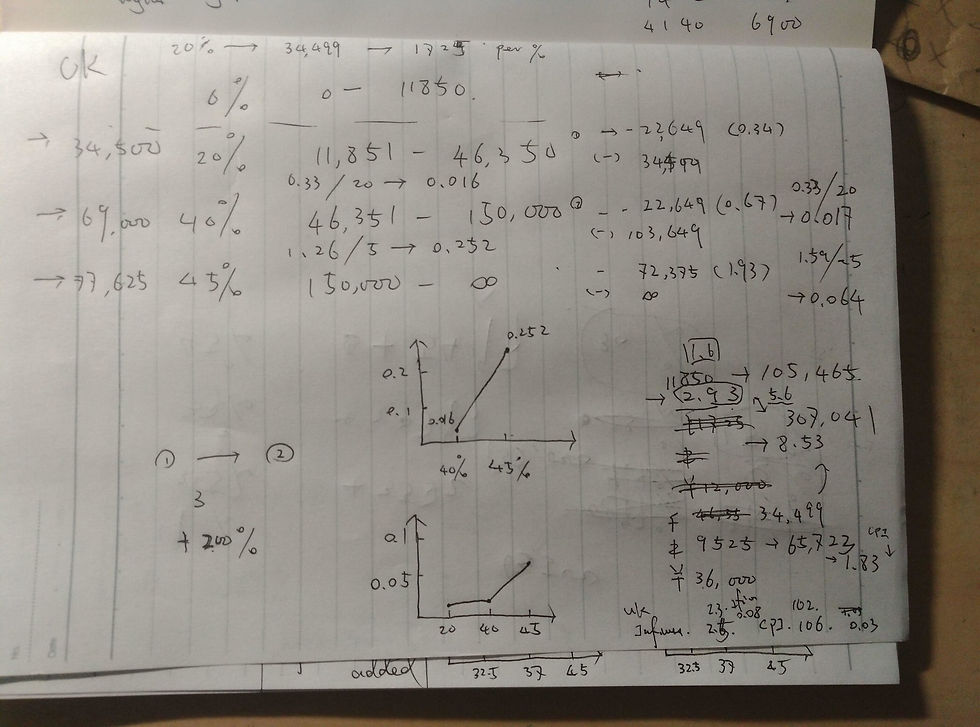 4140 6900
UK 20% → 34,499 → 1725 per %
0% 0 — 11850.
→ 34,500 20% 11,851 — 46,350 ① → - 22,649 (0.34)
(-) 34,499
0.33 / 20 → 0.016
→ 69,000 40% 46,351 — 150,000 ② - - 22,649 (0.67) 0.33/20
→ 0.017
(-) 103,649
1.26/5 → 0.252
→ 77,625 45% 150,000 — ∞ - 72,375 (1.93) 1.59/25
(-) ∞ → 0.064
0.252
0.2
0.1
0.016
40% 45%
11.6
11850 → 105,465
→ 2.93 5.6
307,041
→ 8.53
① → ②
3
+ 200%
12,000
34,499
9525 → 65,723 CPI
→ 1.83
¥ 36,000
0.1
0.05
20 40 45
UK 23. 0.08 102.
CPI. 106. 0.03
added 32.5 37 45 32.5 37 45